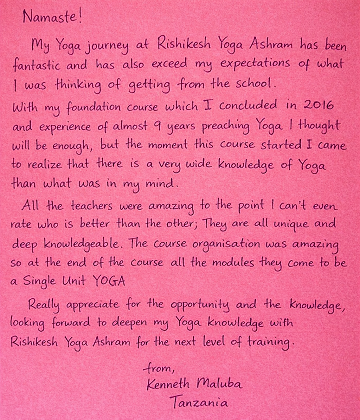 Namaste!
My Yoga journey at Rishikesh Yoga Ashram has been
fantastic and has also exceed my expectations of what
I was thinking of getting from the school.
With my foundation course which I concluded in 2016
and experience of almost 9 years preaching Yoga I thought
will be enough, but the moment this course started I came
to realize that there is a very wide knowledge of Yoga
than what was in my mind.
All the teachers were amazing to the point I can't even
rate who is better than the other; They are all unique and
deep knowledgeable. The course organisation was amazing
so at the end of the course all the modules they come to be
a Single Unit YOGA
Really appreciate for the opportunity and the knowledge,
looking forward to deepen my Yoga knowledge with
Rishikesh Yoga Ashram for the next level of training.
from,
Kenneth Maluba
Tanzania